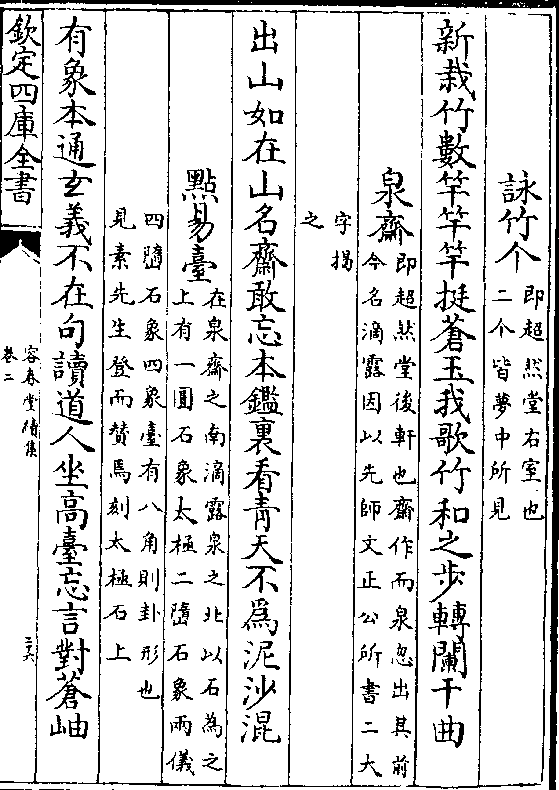 詠竹个即超然堂右室也
二个皆夢中所見
新栽竹數竿竿竿挺蒼玉我歌竹和之步轉闌干曲
泉齋即超然堂後軒也齋作而泉忽出其前
今名滴露因以先師文正公所書二大
字揭
之
出山如在山名齋敢忘本鑑裏看青天不為泥沙混
點易臺在泉齋之南滴露泉之北以石為之
上有一圓石象太極二隨石象兩儀
四隨石象四象臺有八角則卦形也
見素先生登而贊焉刻太極石上
有象本通玄義不在句讀道人坐高臺忘言對蒼岫
欽定四庫全書
容春堂續集
卷二
三六